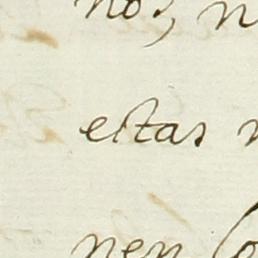 nos,
estas
nen